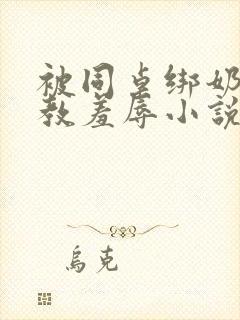 被同桌绑奶
教羞辱小說
烏克